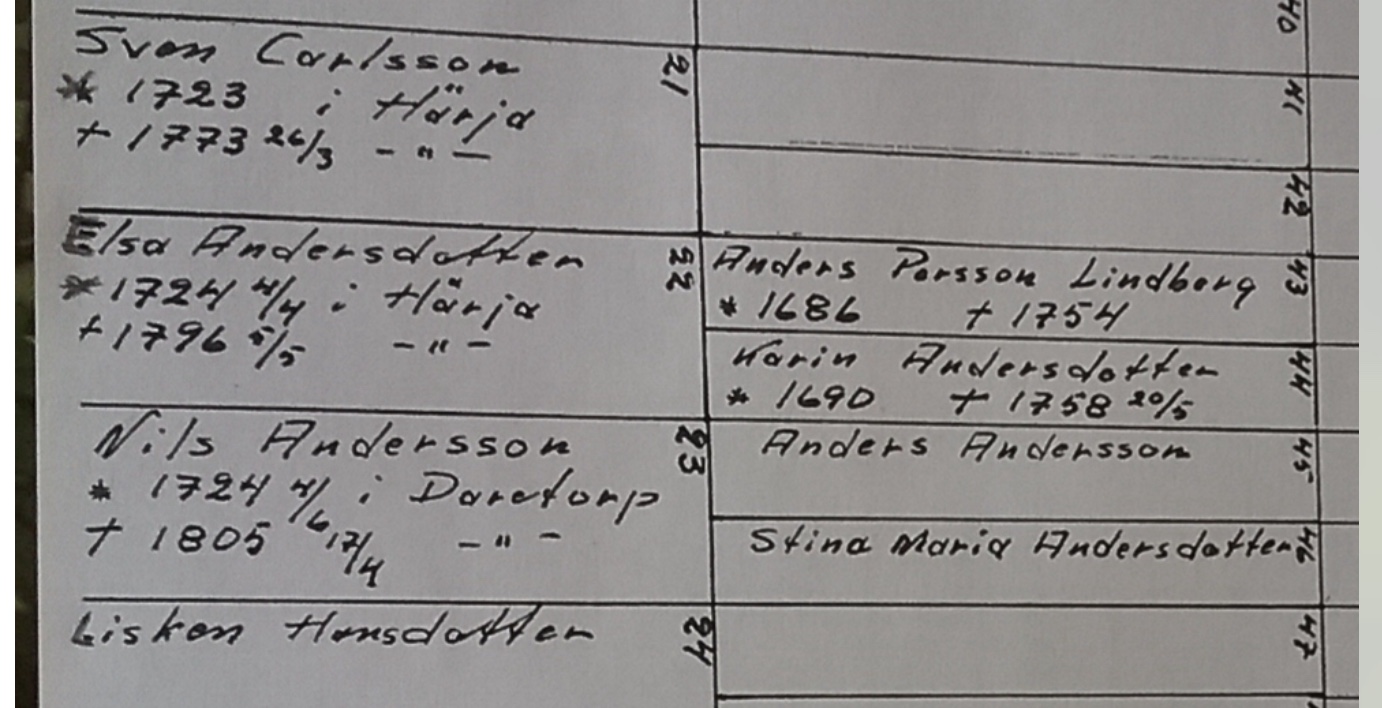 40
Sven Carlsson 21
* 1723 i Härja
+ 1773 26/3 - " -
41
42
Elsa Andersdotter 22
* 1724 4/4 i Härja
+ 1796 5/5 - " -
Anders Persson Lindberg 43
* 1686 + 1754
Karin Andersdotter 44
* 1690 + 1758 20/5
Nils Andersson 23
* 1724 4/6 i Daretorp
+ 1805 17/4 - " -
Anders Andersson 45
Stina Maria Andersdotter 46
Lisken Hansdotter 24
47